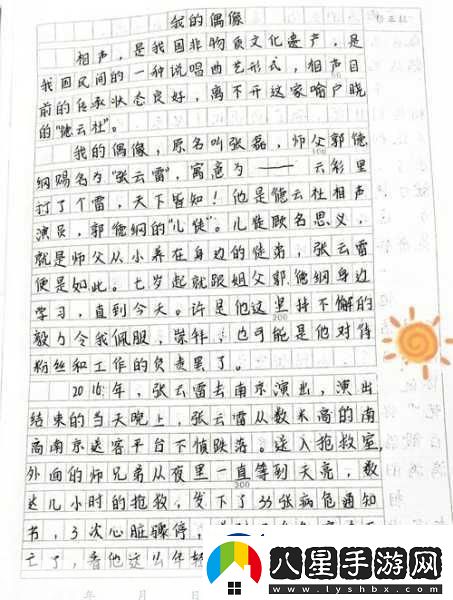 我的偶像
相声，是我国非物质文化遗产，是
我国民间的一种说唱曲艺形式，相声目
前的传承状态良好，离不开这家喻户晓
的“德云社”。
我的偶像，原名叫张磊，师父郭德
纲赐名为“张云雷”，寓意为——云彩里
打了个雷，天下皆知！他是德云社相声
演员，郭德纲的“儿徒”。儿徒顾名思义，
就是师父从小养在身边的徒弟，张云雷
便是如此。七岁起就跟姐父郭德纲身边
学习，直到今天。许是他这坚持不懈的
毅力令我佩服，崇拜，也可能是他对待
粉丝和工作的负责罢了。
200
2016年，张云雷去南京演出，演出
结束的当天晚上，张云雷从数米高的南
南京送客平台下坠跌落。送入抢救室，
外面的师兄弟从夜里一直等到天亮，数
300
这几小时的抢救，发下了33张病危通知
书，3次心脏骤停，
亡了，看他这么年轻
年 月 日
八星手游网
www.lyshbx.com